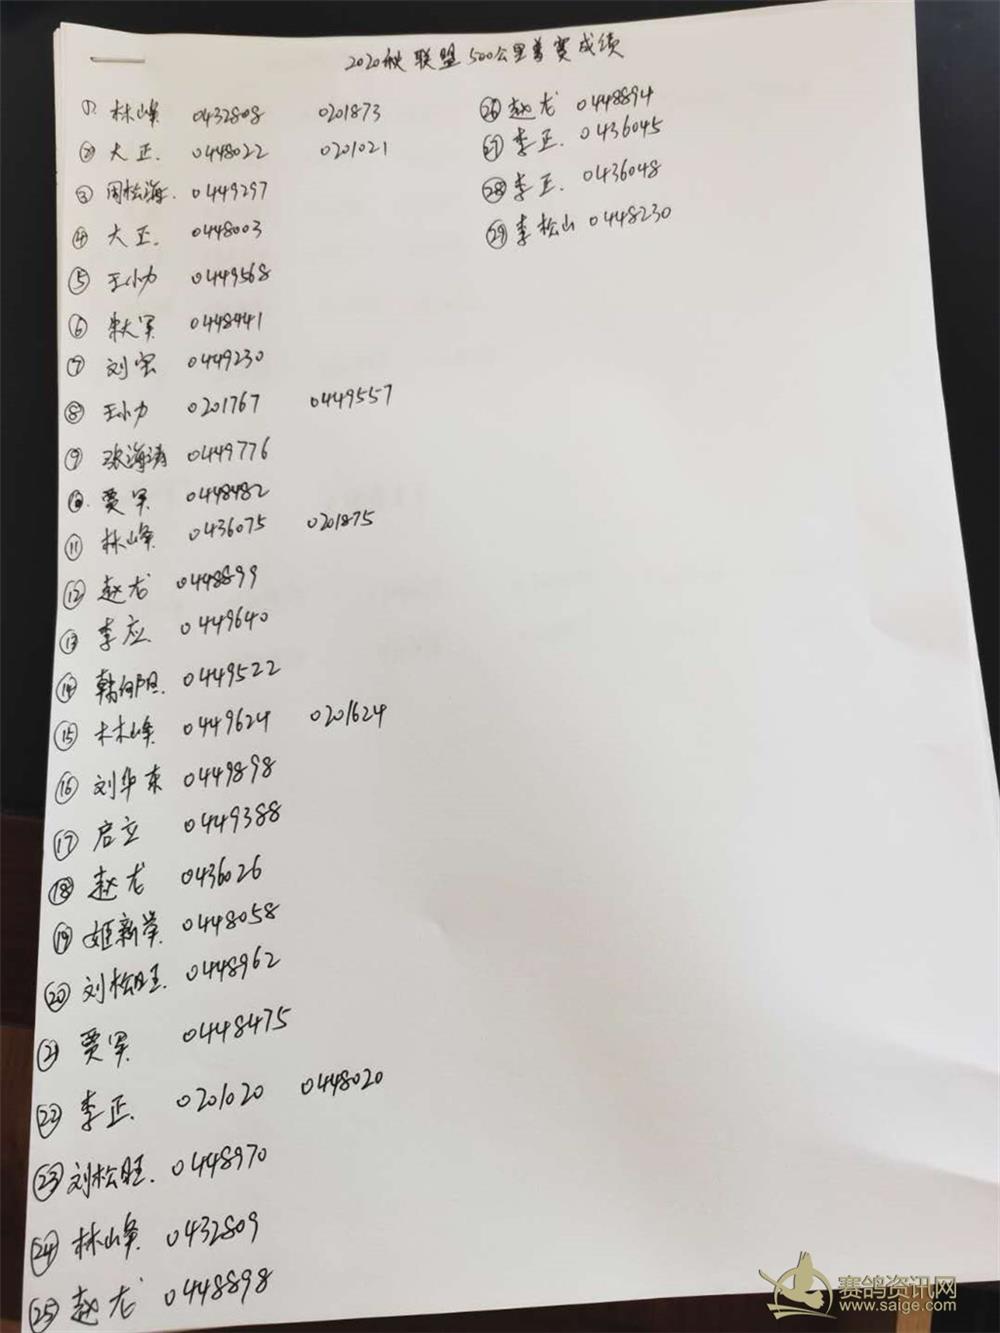 2020秋联盟500公里首赛成绩
① 林峰 0432808 0201873
② 大正. 0448022 0201021
③ 周松海. 0449297
④ 大正. 0448003
⑤ 王小力 0449568
⑥ 军 0448441
⑦ 刘宏 0449230
⑧ 王小力 0201767 0449557
⑨ 张海涛 0449776
⑩. 贾军 0448482
⑪ 林峰 0436075 0201875
⑫ 赵龙 0448899
⑬ 李应. 0449640
⑭ 韩 0449522
⑮ 林峰 0449624 0201624
⑯ 刘华东 0449898
⑰ 启立 0449388
⑱ 赵龙 0436026
⑲ 姬新 0448058
⑳ 刘松旺. 0448962
㉑ 贾军 0448475
㉒ 李正. 0201020 0448020
㉓ 刘松旺. 0448970
㉔ 林峰 0432809
㉕ 赵龙 0448898
㉖ 赵龙 0448894
㉗ 李正. 0436045
㉘ 李正. 0436048
㉙ 李松山 0448230
赛鸽资讯网
www.saige.com